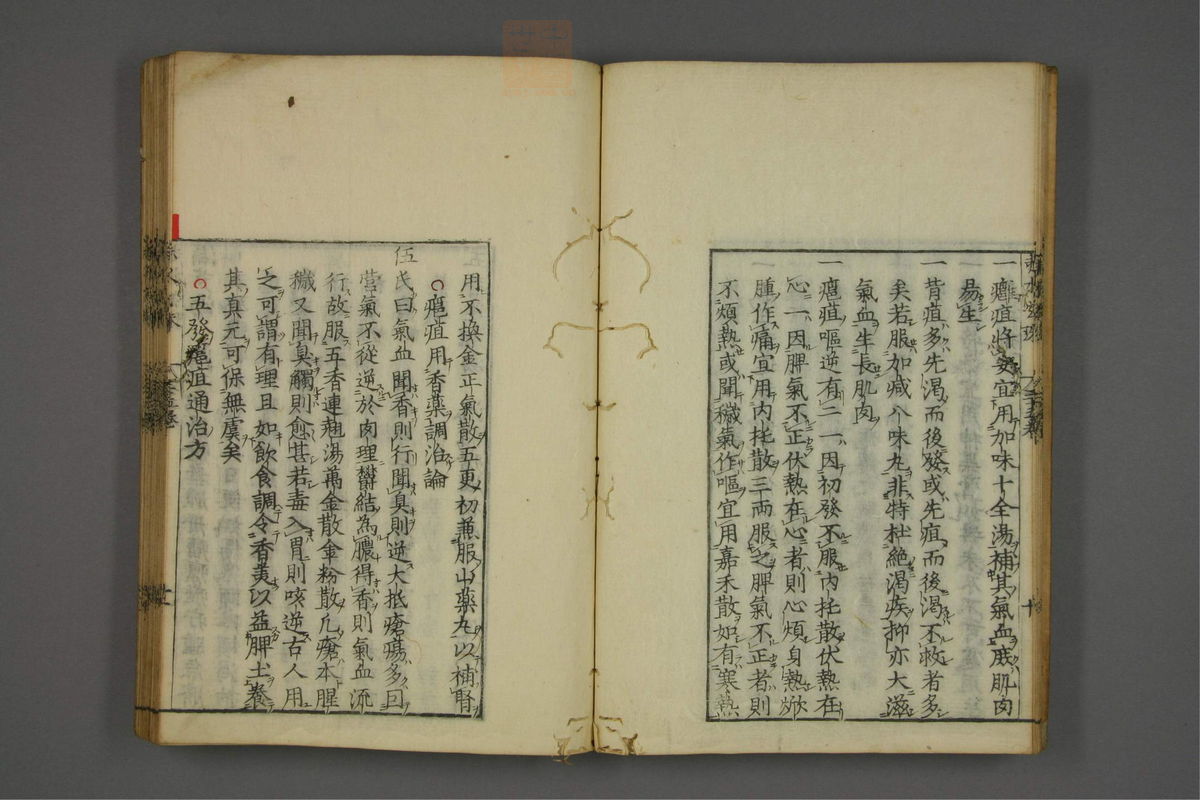 一癰疽將安宜用加味十全湯補其氣血庶肌肉
易生
一背疽多先渴而後發或先疽而後渴不救者多
矣若服加减八味丸非特杜絶渴疾抑亦大滋
氣血生長肌肉
一癰疽嘔逆有二一因初發不服内托散伏熱在
心一因脾氣不正伏熱在心者則心煩身熱㷔
腫作痛宜用内托散三兩服之脾氣不正者則
不煩熱或聞穢氣作嘔宜用嘉禾散如有寒熱
用不換金正氣散五更初兼服山藥丸以補腎
○癰疽用香藥調治論
伍氏曰氣血聞香則行聞臭則逆大抵瘡瘍多因
營氣不從逆於肉理鬱結為膿得香則氣血流
行故服五香連翹湯萬金散金粉散凡瘡本腥
穢又聞臭觸則愈甚若毒入胃則咳逆古人用
之可謂有理且如飲食調令香美以益脾土養
其真元可保無虞矣
○五發癰疽通治方